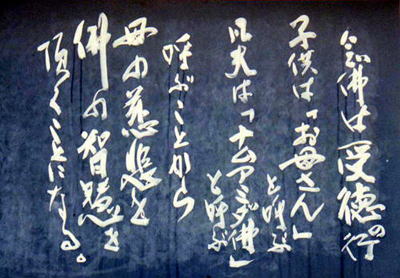 念佛は受徳の行
子供は「お母さん」
と呼ぶ
凡夫は「ナムアミダ佛」
と呼ぶ
呼ぶことから
母の慈悲と
佛の智慧を
頂くことになる。